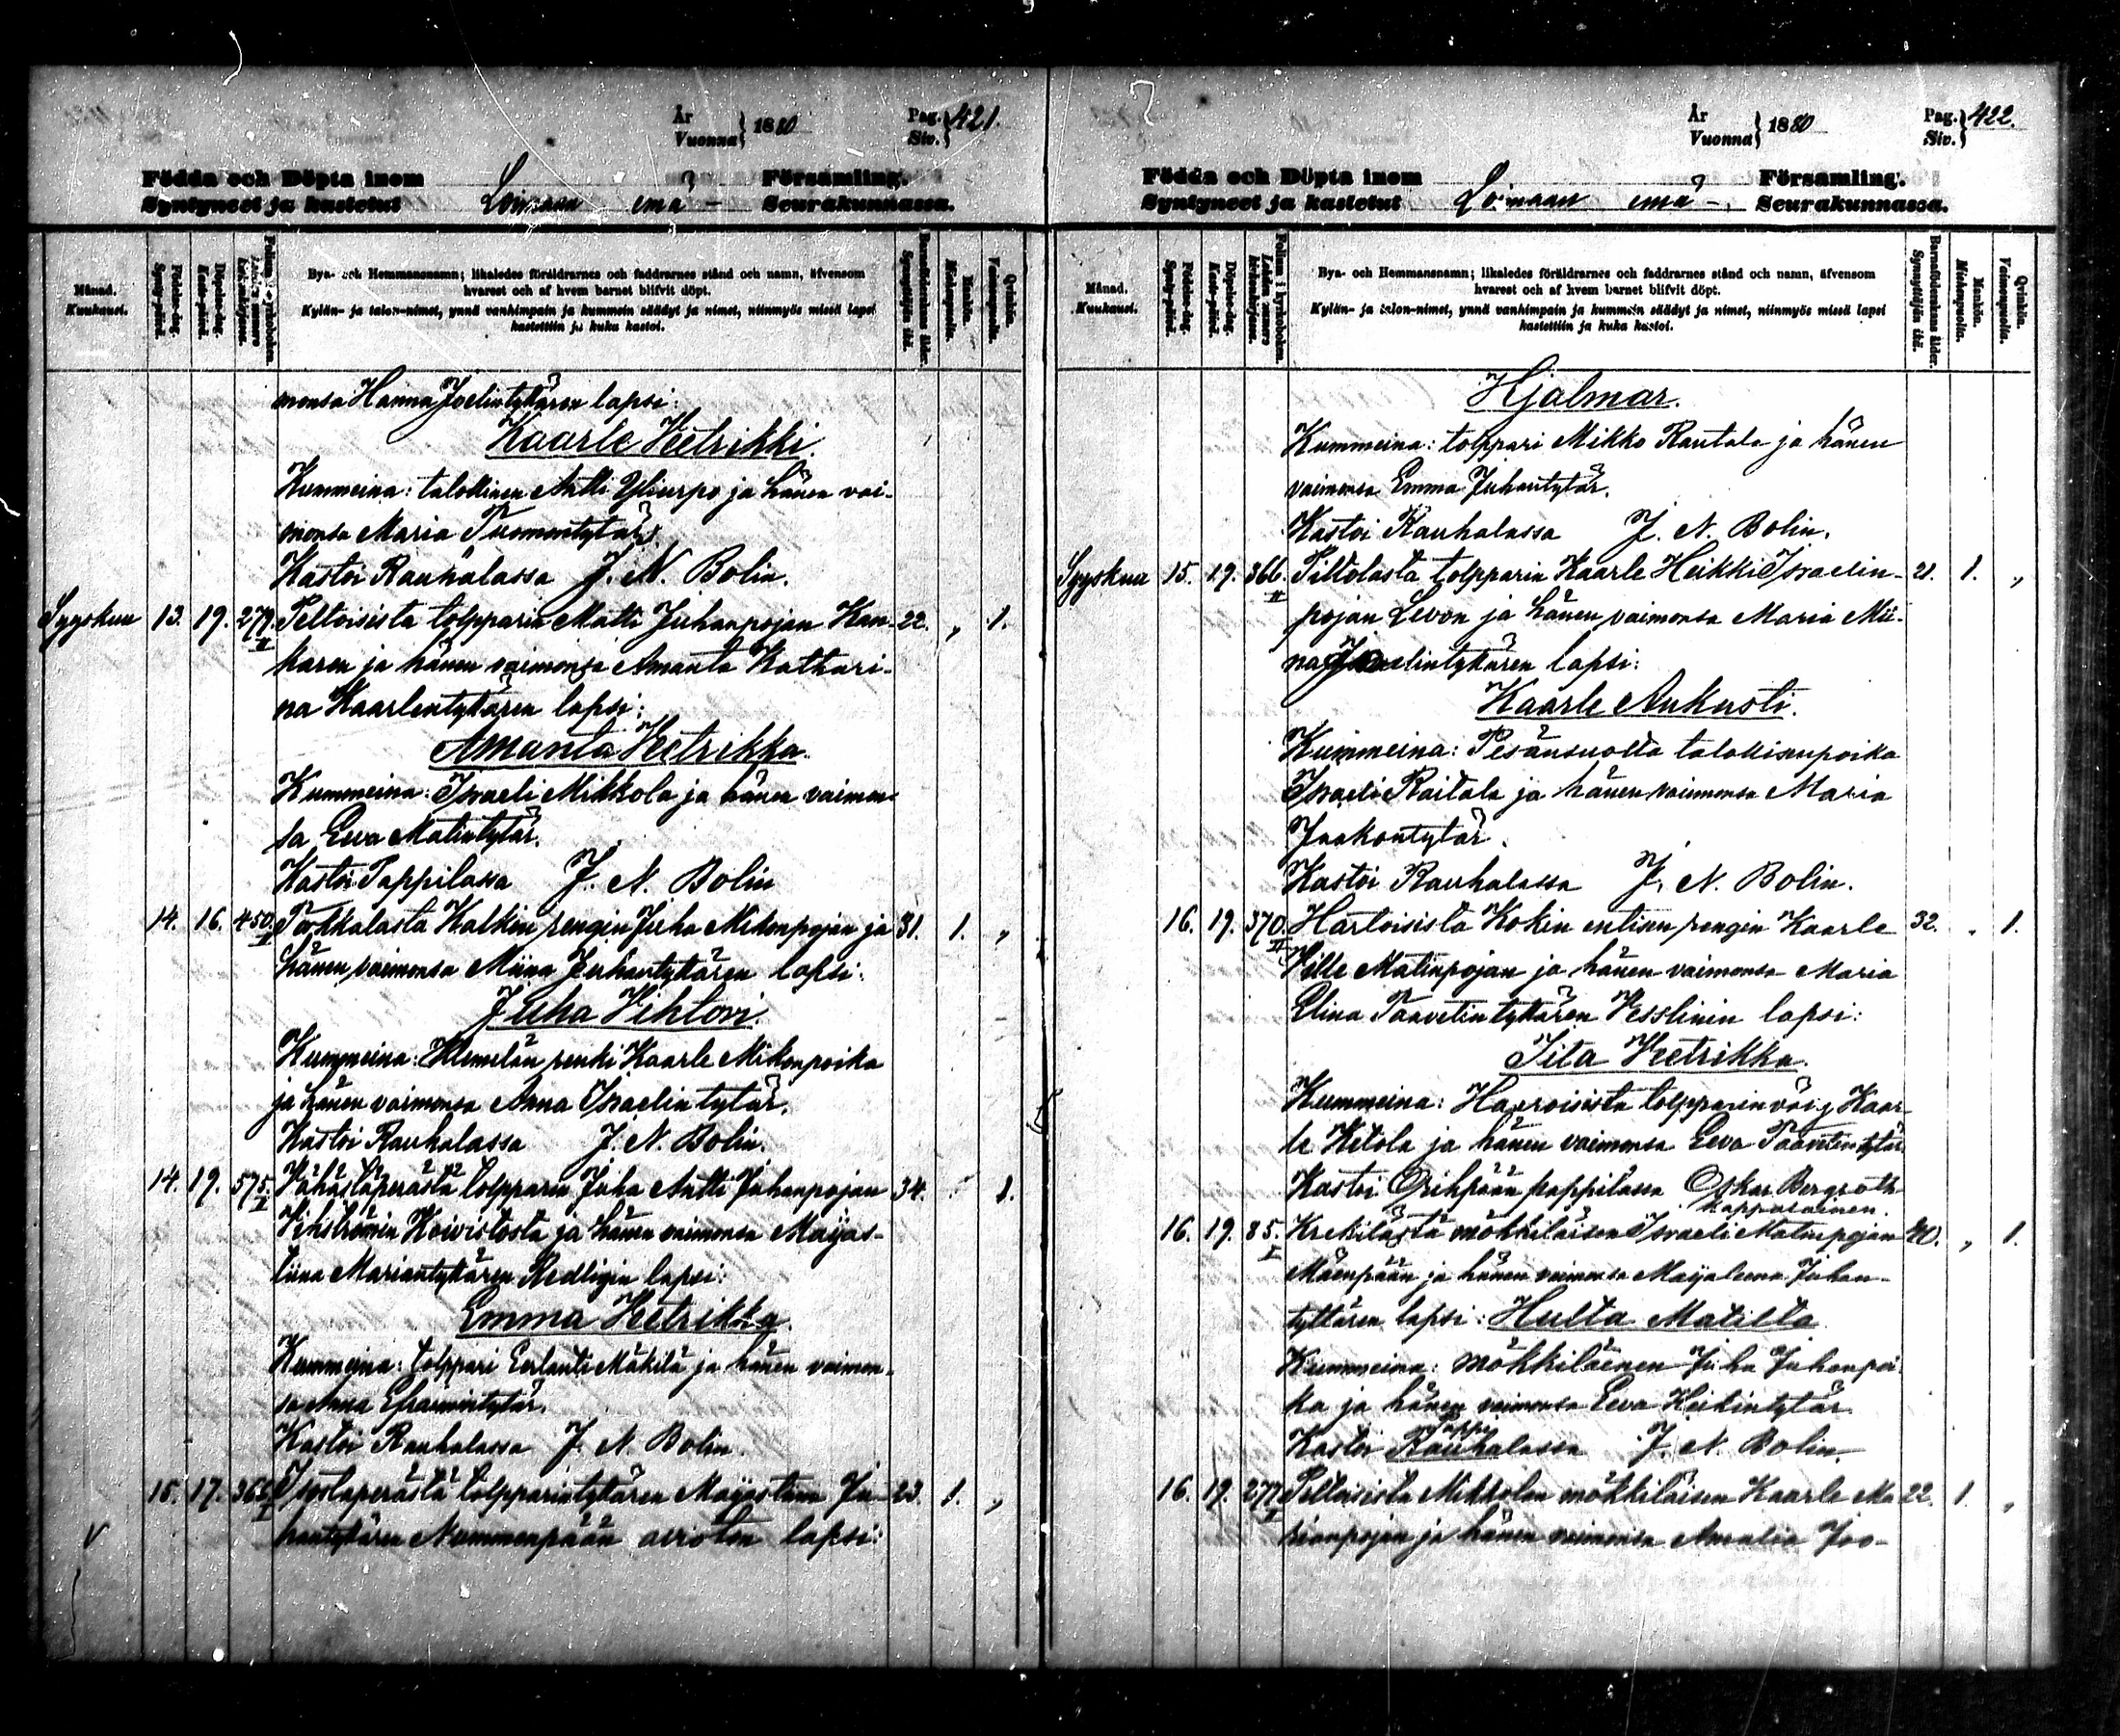 År
Vuonna } 1880
Pag.
Siv. } 421.
Födda och Döpta inom Församling.
Syntyneet ja kastetut Loimaan emä- Seurakunnassa.
Månad.
Kuukausi.
Födelse-dag.
Synty-päivä.
Döpelse-dag.
Kaste-päivä.
Bya- och Hemmansnamn; likaledes föräldrarnes och faddrarnes stånd och namn, äfvensom
hvarest och af hvem barnet blifvit döpt.
Kylän- ja talon-nimet, ynnä vanhimpain ja kummein säädyt ja nimet, niinmyös missä lapsi
kastettiin ja kuka kastoi.
Barnaföderskans ålder.
Synnyttäjän ikä.
Mankön.
Miehenpuolia.
Qvinkön.
Vaimonpuolia.
monsa Hanna Joelintyttären lapsi:
Kaarle Vetrikki.
Kummeina: talollinen Antti Yliurpo ja hänen vai-
monsa Maria Tuomontytär.
Kastoi Rauhalassa J. N. Bolin.
Syyskuu 13. 19. 279. II Peltoisista torpparin Matti Juhanpojan Kan- 22. „ 1.
karen ja hänen vaimonsa Amanta Kathari-
na Kaarlentyttären lapsi:
Amanta Vetrikka.
Kummeina: Israeli Mikkola ja hänen vaimon-
sa Eeva Matintytär.
Kastoi Pappilassa J. N. Bolin
14. 16. 450. Torkkalasta Kalkin rengin Juha Mikonpojan ja 31. 1. „
hänen vaimonsa Miina Juhantyttären lapsi:
Juha Vihtori.
Kummeina: Klemelän renki Kaarle Mikonpoika
ja hänen vaimonsa Anna Israelintytär.
Kastoi Rauhalassa J. N. Bolin.
14. 19. 575. Vähästäperästä torpparin Juha Antti Juhanpojan 34. 1.
Vihströmin Koivistosta ja hänen vaimonsa Maijas-
tiina Mariantyttären Redligin lapsi:
Emma Vetrikka.
Kummeina: torppari Eerlanti Mäkilä ja hänen vaimon-
sa Anna Efraimintytär.
Kastoi Rauhalassa J. N. Bolin.
15. 17. 366. Isostaperästä torpparintyttären Maijastiina Ju- 23. 1. „
hantyttären Nummenpään avioton lapsi:
År
Vuonna } 1880
Pag.
Siv. } 422.
Födda och Döpta inom Församling.
Syntyneet ja kastetut Loimaan emä- Seurakunnassa.
Månad.
Kuukausi.
Födelse-dag.
Synty-päivä.
Döpelse-dag.
Kaste-päivä.
Folium i kyrkoboken.
Lehden numero
kirkonkirjassa.
Bya- och Hemmansnamn; likaledes föräldrarnes och faddrarnes stånd och namn, äfvensom
hvarest och af hvem barnet blifvit döpt.
Kylän- ja talon-nimet, ynnä vanhimpain ja kummein säädyt ja nimet, niinmyös missä lapsi
kastettiin ja kuka kastoi.
Barnaföderskans ålder.
Synnyttäjän ikä.
Mankön.
Miehenpuolia.
Qvinkön.
Vaimonpuolia.
Hjalmar.
Kummeina: torppari Mikko Rautala ja hänen
vaimonsa Emma Juhantytär.
Kastoi Rauhalassa J. N. Bolin.
Syyskuu 15. 19. 366. II Piltolasta torpparin Kaarle Heikki Israelin- 21. 1. „
pojan Levon ja hänen vaimonsa Maria Mii-
na lintyttären lapsi:
Kaarle Aukusti.
Kummeina: Pesänsuolta talollisenpoika
Israeli Raitala ja hänen vaimonsa Maria
Jaakontytär.
Kastoi Rauhalassa J. N. Bolin.
16. 19. 370. II Hartoisista Kokin entisen rengin Kaarle 32. „ 1.
Ville Matinpojan ja hänen vaimonsa Maria
Elina Taavetintyttären Vesslinin lapsi:
Iita Vetrikka.
Kummeina: Haaroisista torpparin Kaar-
le Ketola ja hänen vaimonsa Eeva Taavetintytär
Kastoi Oripään pappilassa Oskar Bergroth
kappalainen.
16. 19. 85. I Krekilästä mökkiläisen Israeli Matinpojan 40. „ 1.
Mäenpään ja hänen vaimonsa Maijaleena Juhan-
tyttären lapsi: Hulta Matilta
Kummeina: mökkiläinen Juha Juhanpoi-
ka ja hänen vaimonsa Eeva Heikintytär.
Pappi
Kastoi Rauhalassa J. N. Bolin.
16. 19. 277. Peltoisista Mikkolan mökkiläisen Kaarle Ma- 22. 1. „
rianpojan ja hänen vaimonsa Amalia Joo-